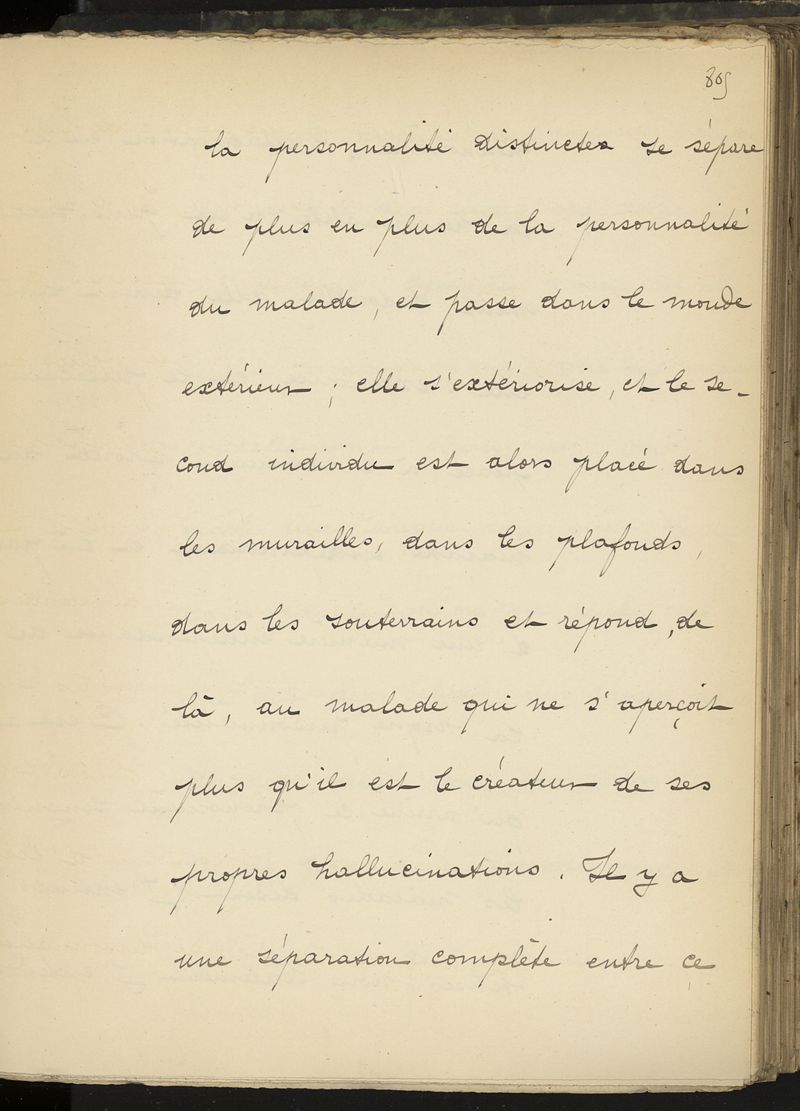 805
la personnalité distinctes se sépare
de plus en plus de la personnalité
du malade, et passe dans le monde
extérieur ; elle s'extériorise, et le se-
cond individu est alors placé dans
les murailles, dans les plafonds,
dans les souterrains et répond, de
là, au malade qui ne s'aperçoit
plus qu'il est le créateur de ses
propres hallucinations. Il y a
une séparation complète entre ce